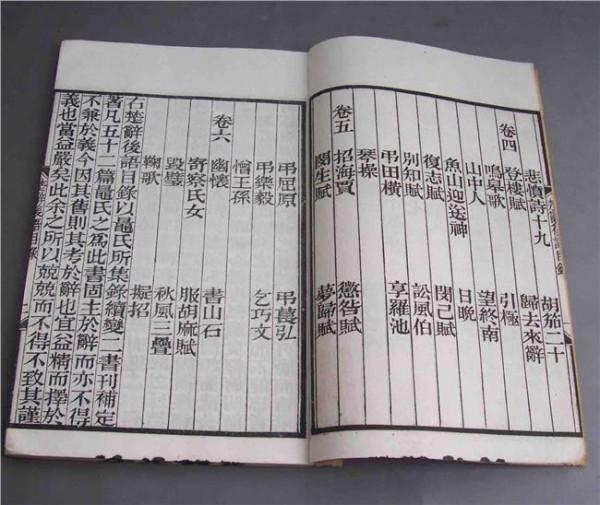 悲憤詩十九 胡笳二十
登樓賦 歸去來辭
卷四 鳴皋歌 引極
山中人 望終南
魚山迎送神 日晚
復志賦 閔己賦
別知賦 訟風伯
弔田橫 享羅池
琴操
卷五 招海賈 懲咎賦
閔生賦 夢歸賦
弔屈原 弔萇弘
弔樂毅 乞巧文
憎王孫
卷六 幽懷 書山石
寄蔡氏女 服胡麻賦
毀璧 秋風三疊
鞠歌 擬招
右楚辭後語目錄以鼂氏所集錄續變二書刊補定
著凡五十二篇鼂氏之為此書固主於辭而亦不得
不兼於義今因其舊則其考於辭也宜益精而擇於
義也當益嚴矣此余之所以兢兢而不得不致其謹